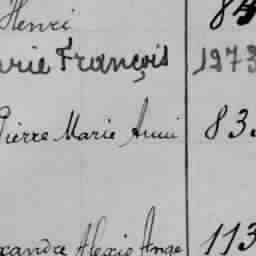 Henri 84
arie François 1273
Pierre Marie Aimé 83
xandre Alexis Ange 113